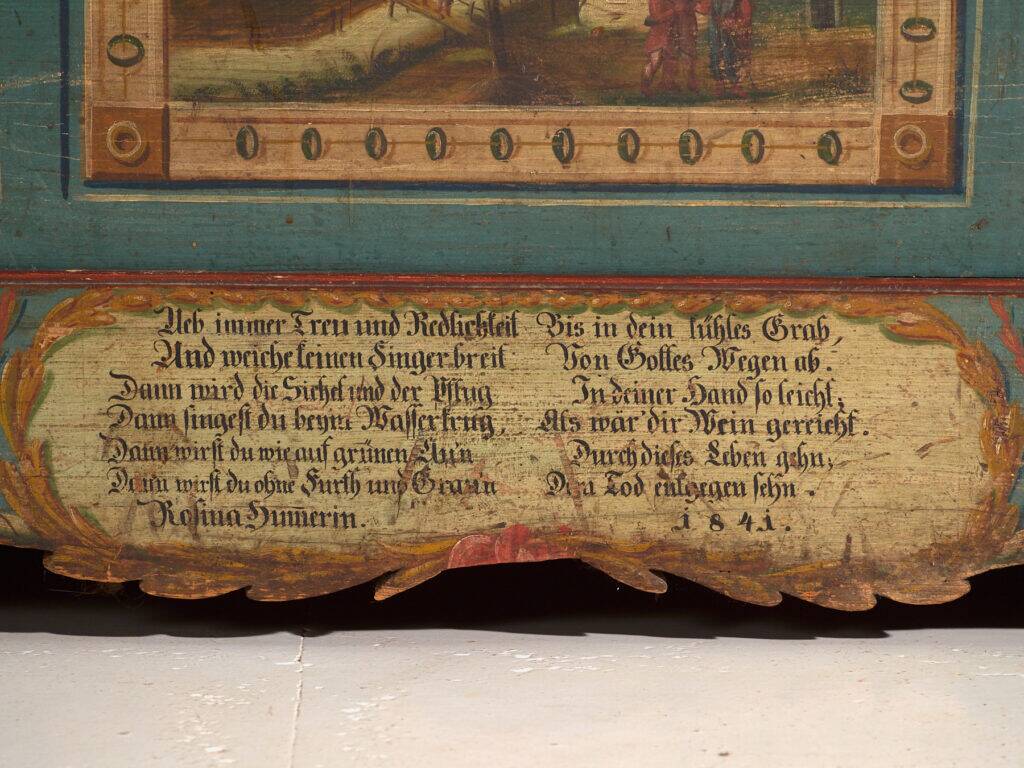 Ueb immer Treu und Redlichkeit Bis in dein kühles Grab,
Und weiche keinen Finger breit Von Gottes Wegen ab.
Dann wird die Sichel und der Pflug In deiner Hand so leicht;
Dann singest du beym Wasserkrug, Als wär' dir Wein gereicht.
Dann wirst du wie auf grünen Au'n Durch dieses Leben gehn;
Dann wirst du ohne Furth und Graun Dem Tod entgegen sehn.
Rosina Hum̅erin. 1841.